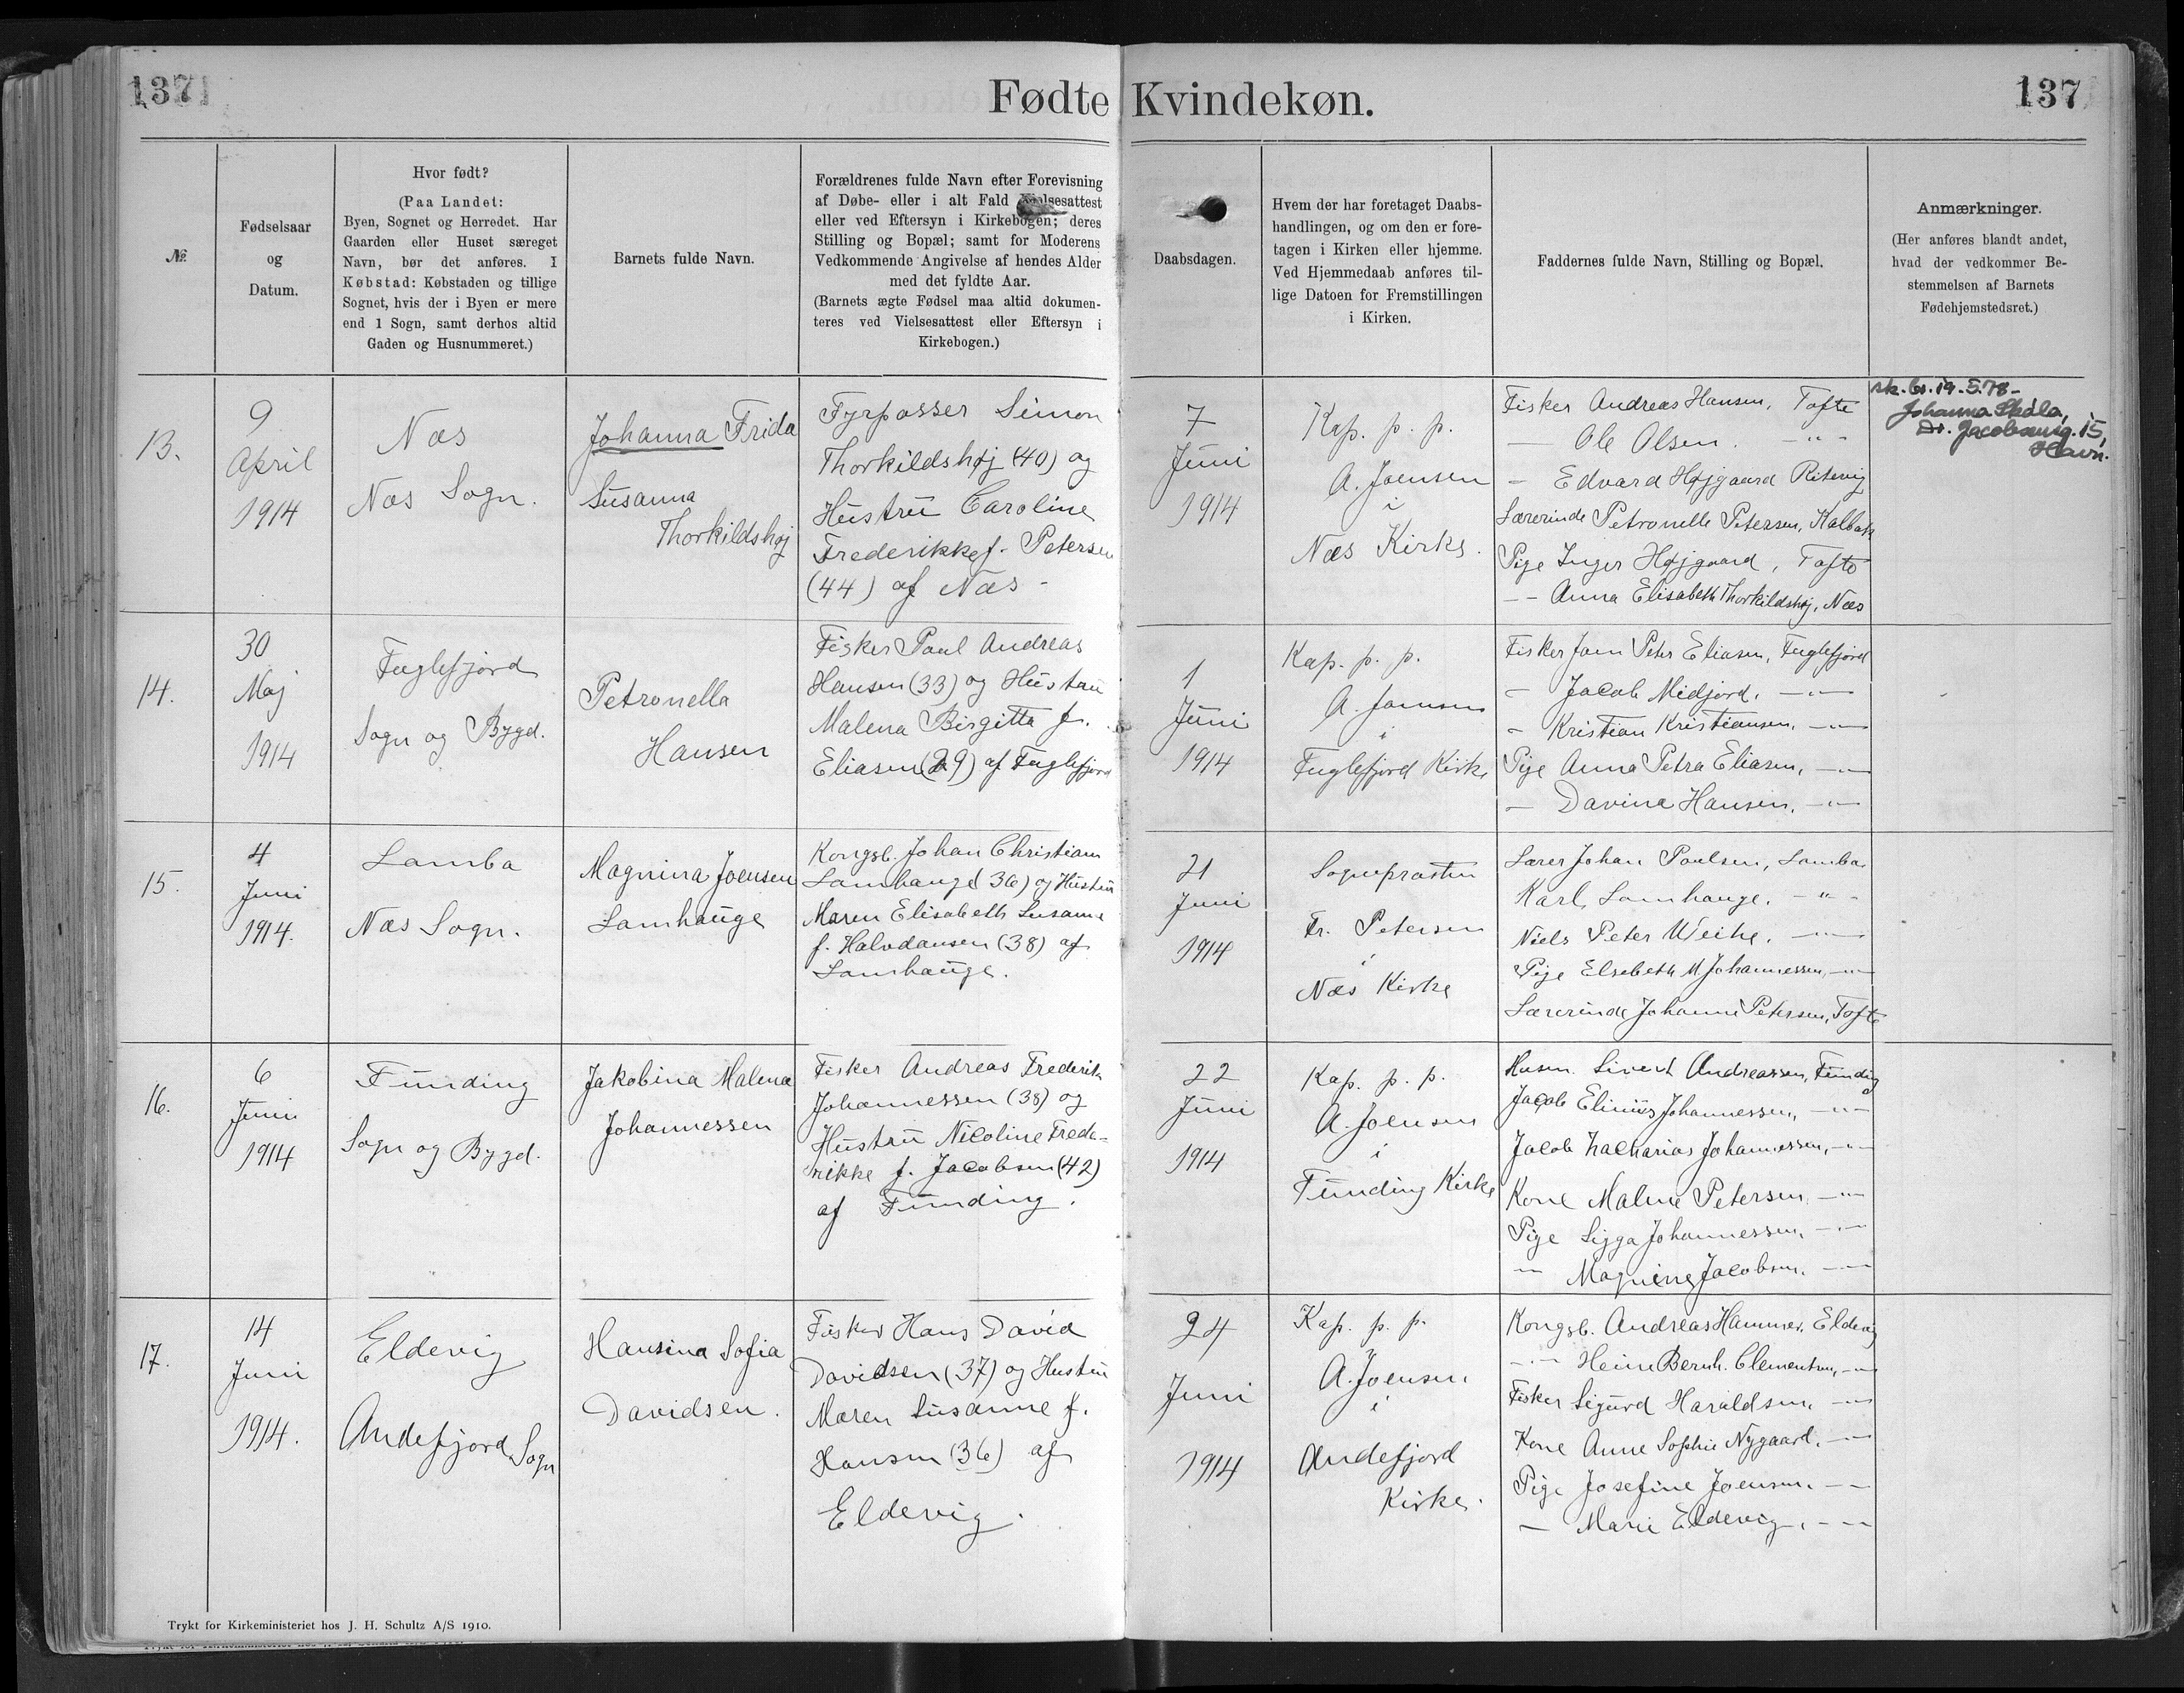 137
Fødte Kvindekøn.
137
№
Fødselsaar
og
Datum.
Hvor født?
(Paa Landet:
Byen, Sognet og Herredet. Har
Gaarden eller Huset særeget
Navn, bør det anføres. I
Købstad: Købstaden og tillige
Sognet, hvis der i Byen er mere
end 1 Sogn, samt derhos altid
Gaden og Husnummeret.)
Barnets fulde Navn.
Forældrenes fulde Navn efter Forevisning
af Døbe- eller i alt Fald Vielsesattest
eller ved Eftersyn i Kirkebogen; deres
Stilling og Bopæl; samt for Moderens
Vedkommende Angivelse af hendes Alder
med det fyldte Aar.
(Barnets ægte Fødsel maa altid dokumen-
teres ved Vielsesattest eller Eftersyn i
Kirkebogen.)
Daabsdagen.
Hvem der har foretaget Daabs-
handlingen, og om den er fore-
tagen i Kirken eller hjemme.
Ved Hjemmedaab anføres til-
lige Datoen for Fremstillingen
i Kirken.
Faddernes fulde Navn, Stilling og Bopæl.
Anmærkninger.
(Her anføres blandt andet,
hvad der vedkommer Be-
stemmelsen af Barnets
Fødehjemstedsret.)
13.
9
April
1914
Næs
Næs Sogn.
Johanna Frida
Susanna
Thorkildshøj
Fyrpasser Simon
Thorkildshøj (40) og
Hustru Caroline
Frederikke f. Petersen
(44) af Næs -
7
Juni
1914
Kap. p. p.
A. Joensen
i
Næs Kirke.
Fisker Andreas Hansen, Tofte
— Ole Olsen. -"-
- Edvard Højgaard Ritevig
Lærerinde Petronelle Petersen, Kalbak
Pige Inger Højgaard, Tofte
-- Anna Elisabeth Thorkildshøj, Næs
sk. br. 19.5.78-
Johanna Skála,
Dr. Jacobsensg. 15,
Havn.
14.
30
Maj
1914
Fuglefjord
Sogn og Bygd.
Petronella
Hansen
Fisker Poul Andreas
Hansen (33) og Hustru
Malena Birgitta f.
Eliasen (29) af Fuglefjord
1
Juni
1914
Kap. p. p.
A. Joensen
i
Fuglefjord Kirke
Fisker Joen Peter Eliasen, Fuglefjord
- Jacob Midjord. -"-
- Kristian Kristiansen. -"-
Pige Anna Petra Eliasen, -"-
- Davina Hansen, -"-
15.
4
Juni
1914.
Lamba
Næs Sogn.
Magnina Joensen
Lamhauge
Kongsb. Johan Christian
Lamhauge (36) og Hustru
Maren Elisabeth Susanne
f. Halvdansen (38) af
Lamhauge.
21
Juni
1914
Sognepræsten
Fr. Petersen
i
Næs Kirke
Lærer Johan Poulsen, Lamba
Karl Lamhauge. -"-
Niels Peter Weihe. -"-
Pige Elsebeth M Johannessen, -"-
Lærerinde Johanne Petersen, Tofte
16.
6
Juni
1914
Funding
Sogn og Bygd.
Jakobina Malena
Johannessen
Fisker Andreas Frederik
Johannessen (38) og
Hustru Nicoline Frede-
rikke f. Jacobsen (42)
af Funding.
22
Juni
1914
Kap. p. p.
A. Joensen
i
Funding Kirke
Husm. Sivert Andreassen, Funding
Jacob Elinius Johannessen, -"-
Jacob Zacharias Johannessen, -"-
Kone Malene Petersen, -"-
Pige Sigga Johannessen, -"-
- Magnine Jacobsen. -"-
17.
14
Juni
1914.
Eldevig
Andefjord Sogn
Hansina Sofia
Davidsen.
Fisker Hans David
Davidsen (37) og Hustru
Maren Susanne f.
Hansen (36) af
Eldevig.
24
Juni
1914
Kap. p. p.
A. Joensen
i
Andefjord
Kirke.
Kongsb. Andreas Hammer. Eldevig
-"- Heine Bernh. Clementsen, -"-
Fisker Sigurd Haraldsen, -"-
Kone Anne Sophie Nygaard. -"-
Pige Josefine Joensen. -"-
- Marie Eldevig, -"-
Trykt for Kirkeministeriet hos J. H. Schultz A/S 1910.